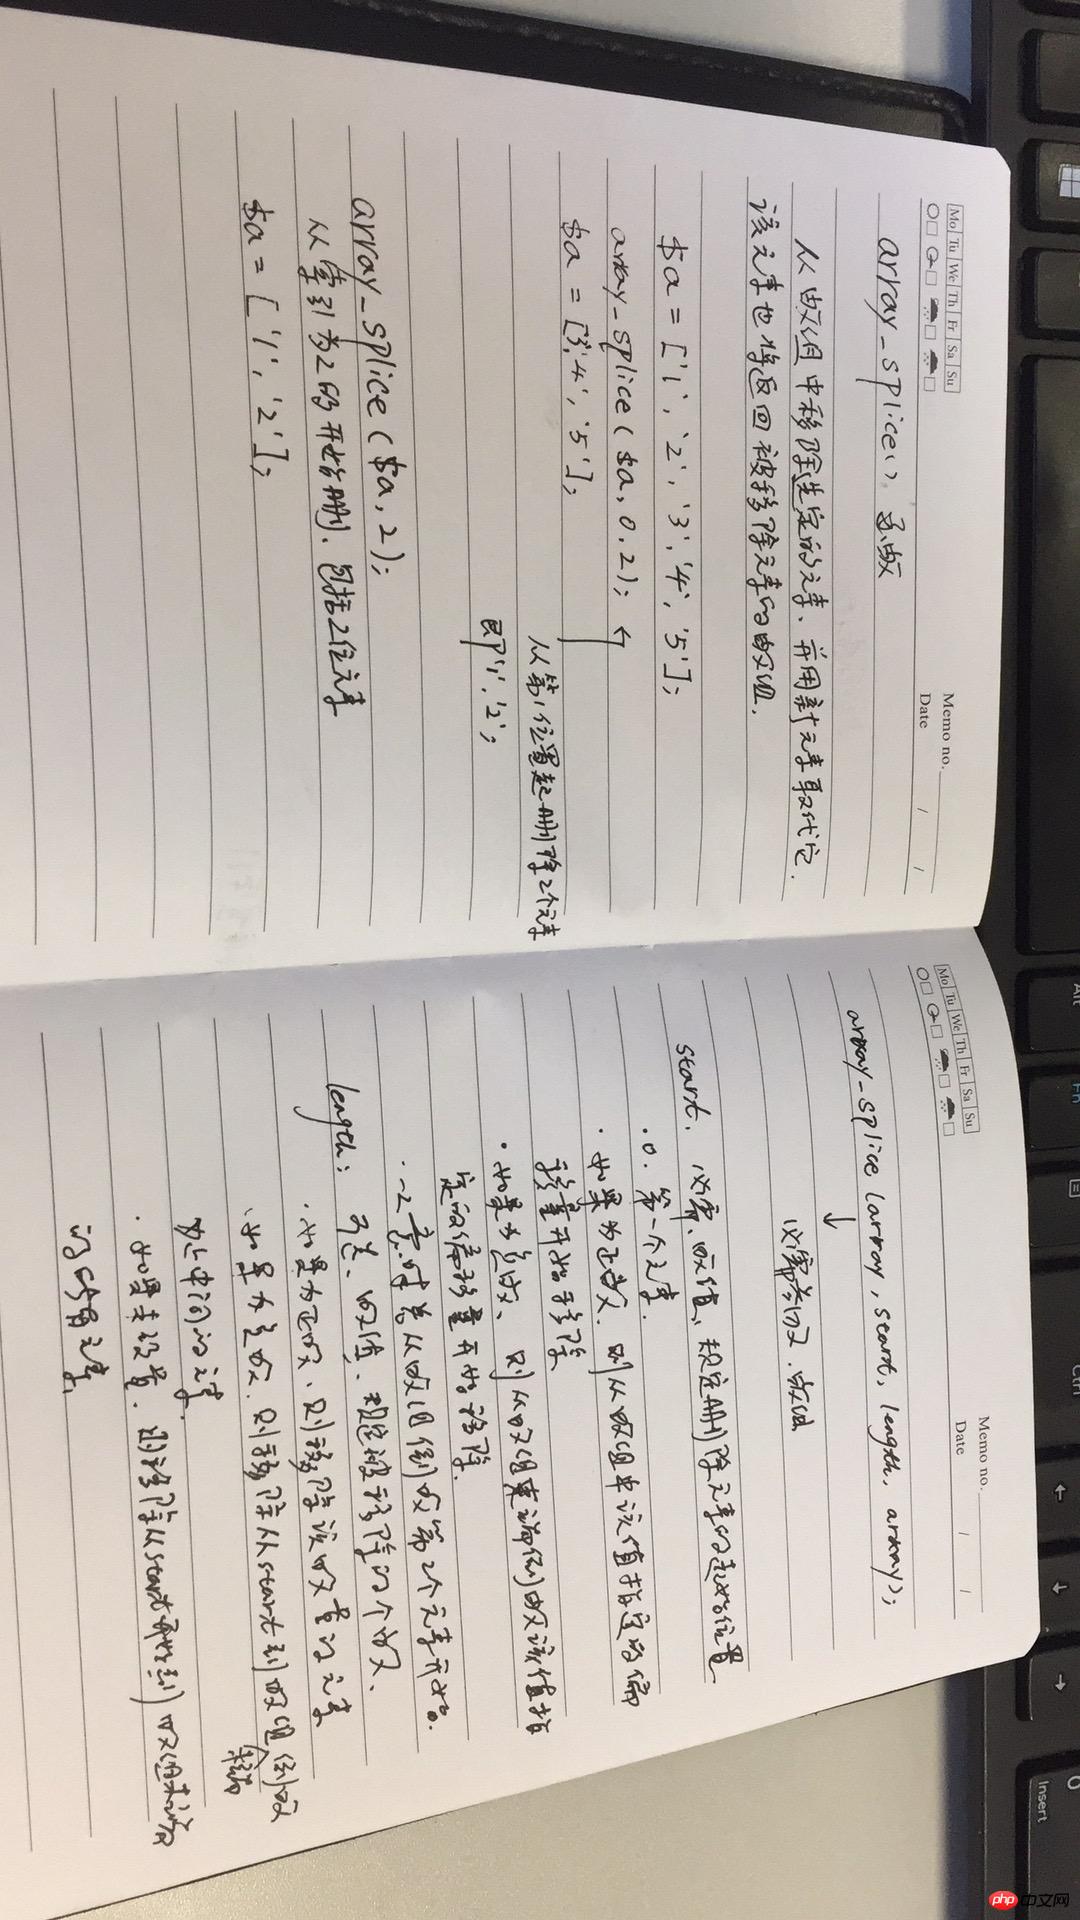 Mo Tu We Th Fr Sa Su
Memo no.
Date / /
array_splice(). 函数
从数组中移除选定的元素、并用新元素取代它.
该元素也将返回被移除元素的数组.
$a = ['1', '2', '3', '4', '5'];
array_splice($a, 0, 2);
$a = ['3', '4', '5'];
从第1位置起删除2个元素
即'1', '2';
array_splice($a, 2);
从索引为2的开始删、包括2位元素
$a = ['1', '2'];
Mo Tu We Th Fr Sa Su
Memo no.
Date / /
array_splice(array, start, length, array);
↓
必需参数.数组
start. 必需、数值、规定删除元素的起始位置
· 0. 第一个元素.
· 如果为正数. 则从数组中该值指定的偏
移量开始移除
· 如果为负数、则从数组末端倒数该值指
定的偏移量开始移除.
· -2意味着从数组倒数第2个元素开始.
length: 可选、数值、规定被移除的个数、
· 如果为正数、则移除该数量的元素
· 如果为负数. 则移除从start到数组末端倒数
为止中间的元素.
· 如果未设置. 则移除从start开始到数组末端
的所有元素.
Alt
Fn
Ctrl
Insert
0
php中文网